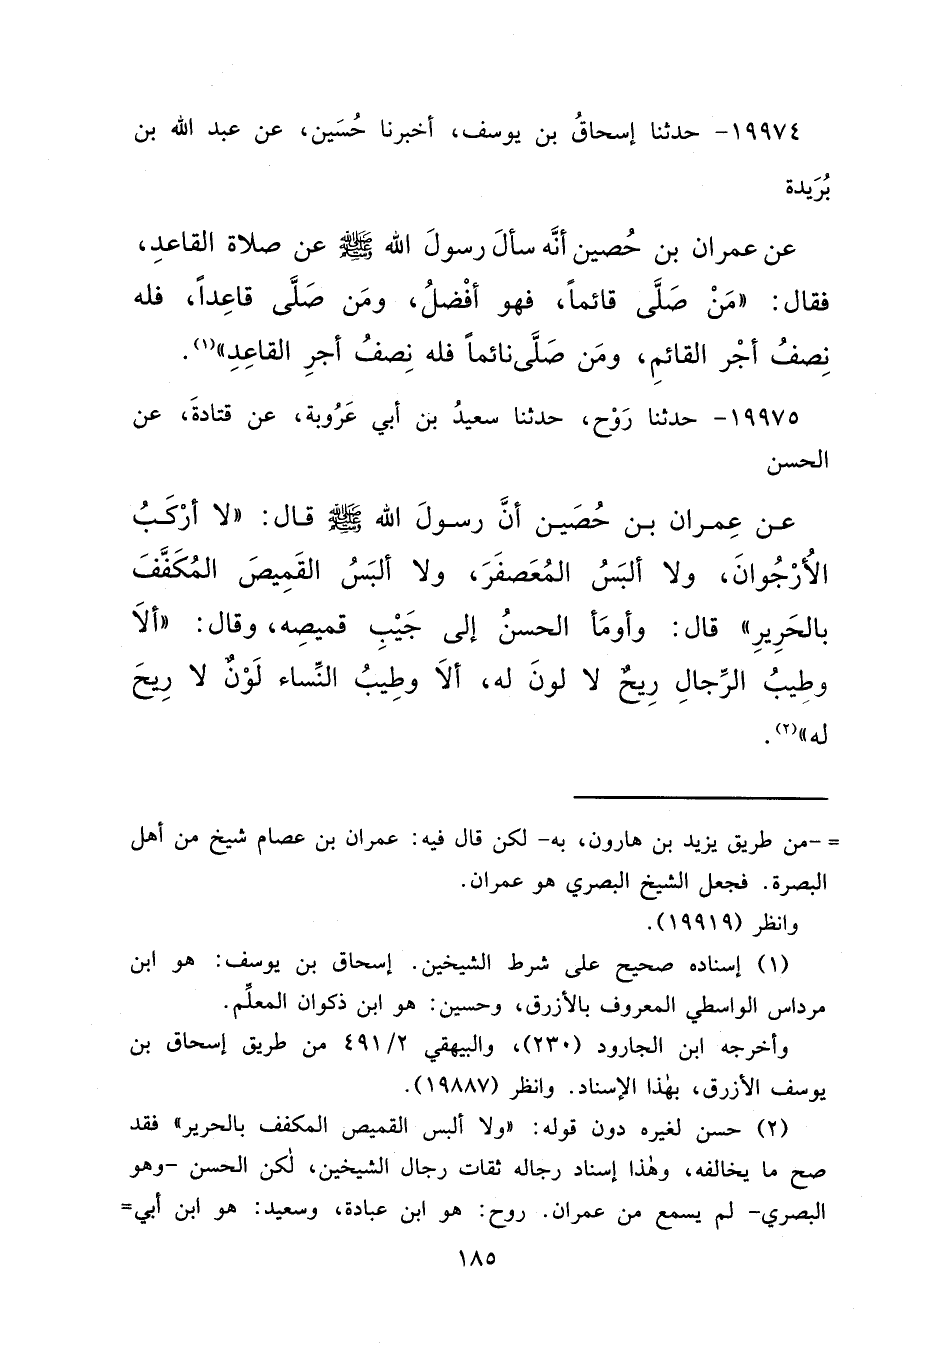 ١٩٩٧٤- حدثنا إسحاقُ بن يوسف، أخبرنا حُسَين، عن عبد الله بن
بُرَيدة
عن عمران بن حُصين أنَّه سألَ رسولَ الله ﷺ عن صلاة القاعدِ،
فقال: «مَنْ صَلَّى قائماً، فهو أفْضلُ، ومَن صَلَّى قاعِداً، فله
نِصفُ أجْر القائمِ، ومَن صَلَّى نائماً فله نِصفُ أجرِ القاعِدِ»(١).
١٩٩٧٥- حدثنا رَوْح، حدثنا سعيدُ بن أبي عَرُوبة، عن قتادةَ، عن
الحسن
عـن عِمـران بـن حُصَيـن أنَّ رسـولَ الله ﷺ قـال: «لا أرْكَـبُ
الأُرْجُوانَ، ولا ألبَسُ المُعَصفَرَ، ولا ألبَسُ القَمِيصَ المُكَفَّفَ
بالحَرِيرِ» قال: وأومَأ الحسنُ إلى جَيْبِ قميصِه، وقال: «ألاَ
وطِيبُ الرِّجالِ رِيحٌ لا لونَ له، ألاَ وطِيبُ النِّساء لَوْنٌ لا رِيحَ
له»(٢).
= -من طريق يزيد بن هارون، به- لكن قال فيه: عمران بن عصام شيخ من أهل
البصرة. فجعل الشيخ البصري هو عمران.
وانظر (١٩٩١٩).
(١) إسناده صحيح على شرط الشيخين. إسحاق بن يوسف: هو ابن
مرداس الواسطي المعروف بالأزرق، وحسين: هو ابن ذكوان المعلِّم.
وأخرجه ابن الجارود (٢٣٠)، والبيهقي ٤٩١/٢ من طريق إسحاق بن
يوسف الأزرق، بهٰذا الإسناد. وانظر (١٩٨٨٧).
(٢) حسن لغيره دون قوله: «ولا ألبس القميص المكفف بالحرير» فقد
صح ما يخالفه، وهٰذا إسناد رجاله ثقات رجال الشيخين، لٰكن الحسن -وهو
البصري- لم يسمع من عمران. روح: هو ابن عبادة، وسعيد: هو ابن أبي=
١٨٥